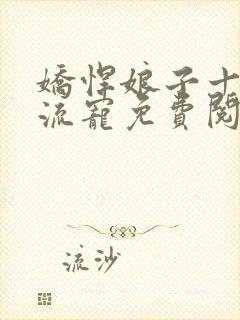 嬌悍娘子十
流寵免費閱
流沙